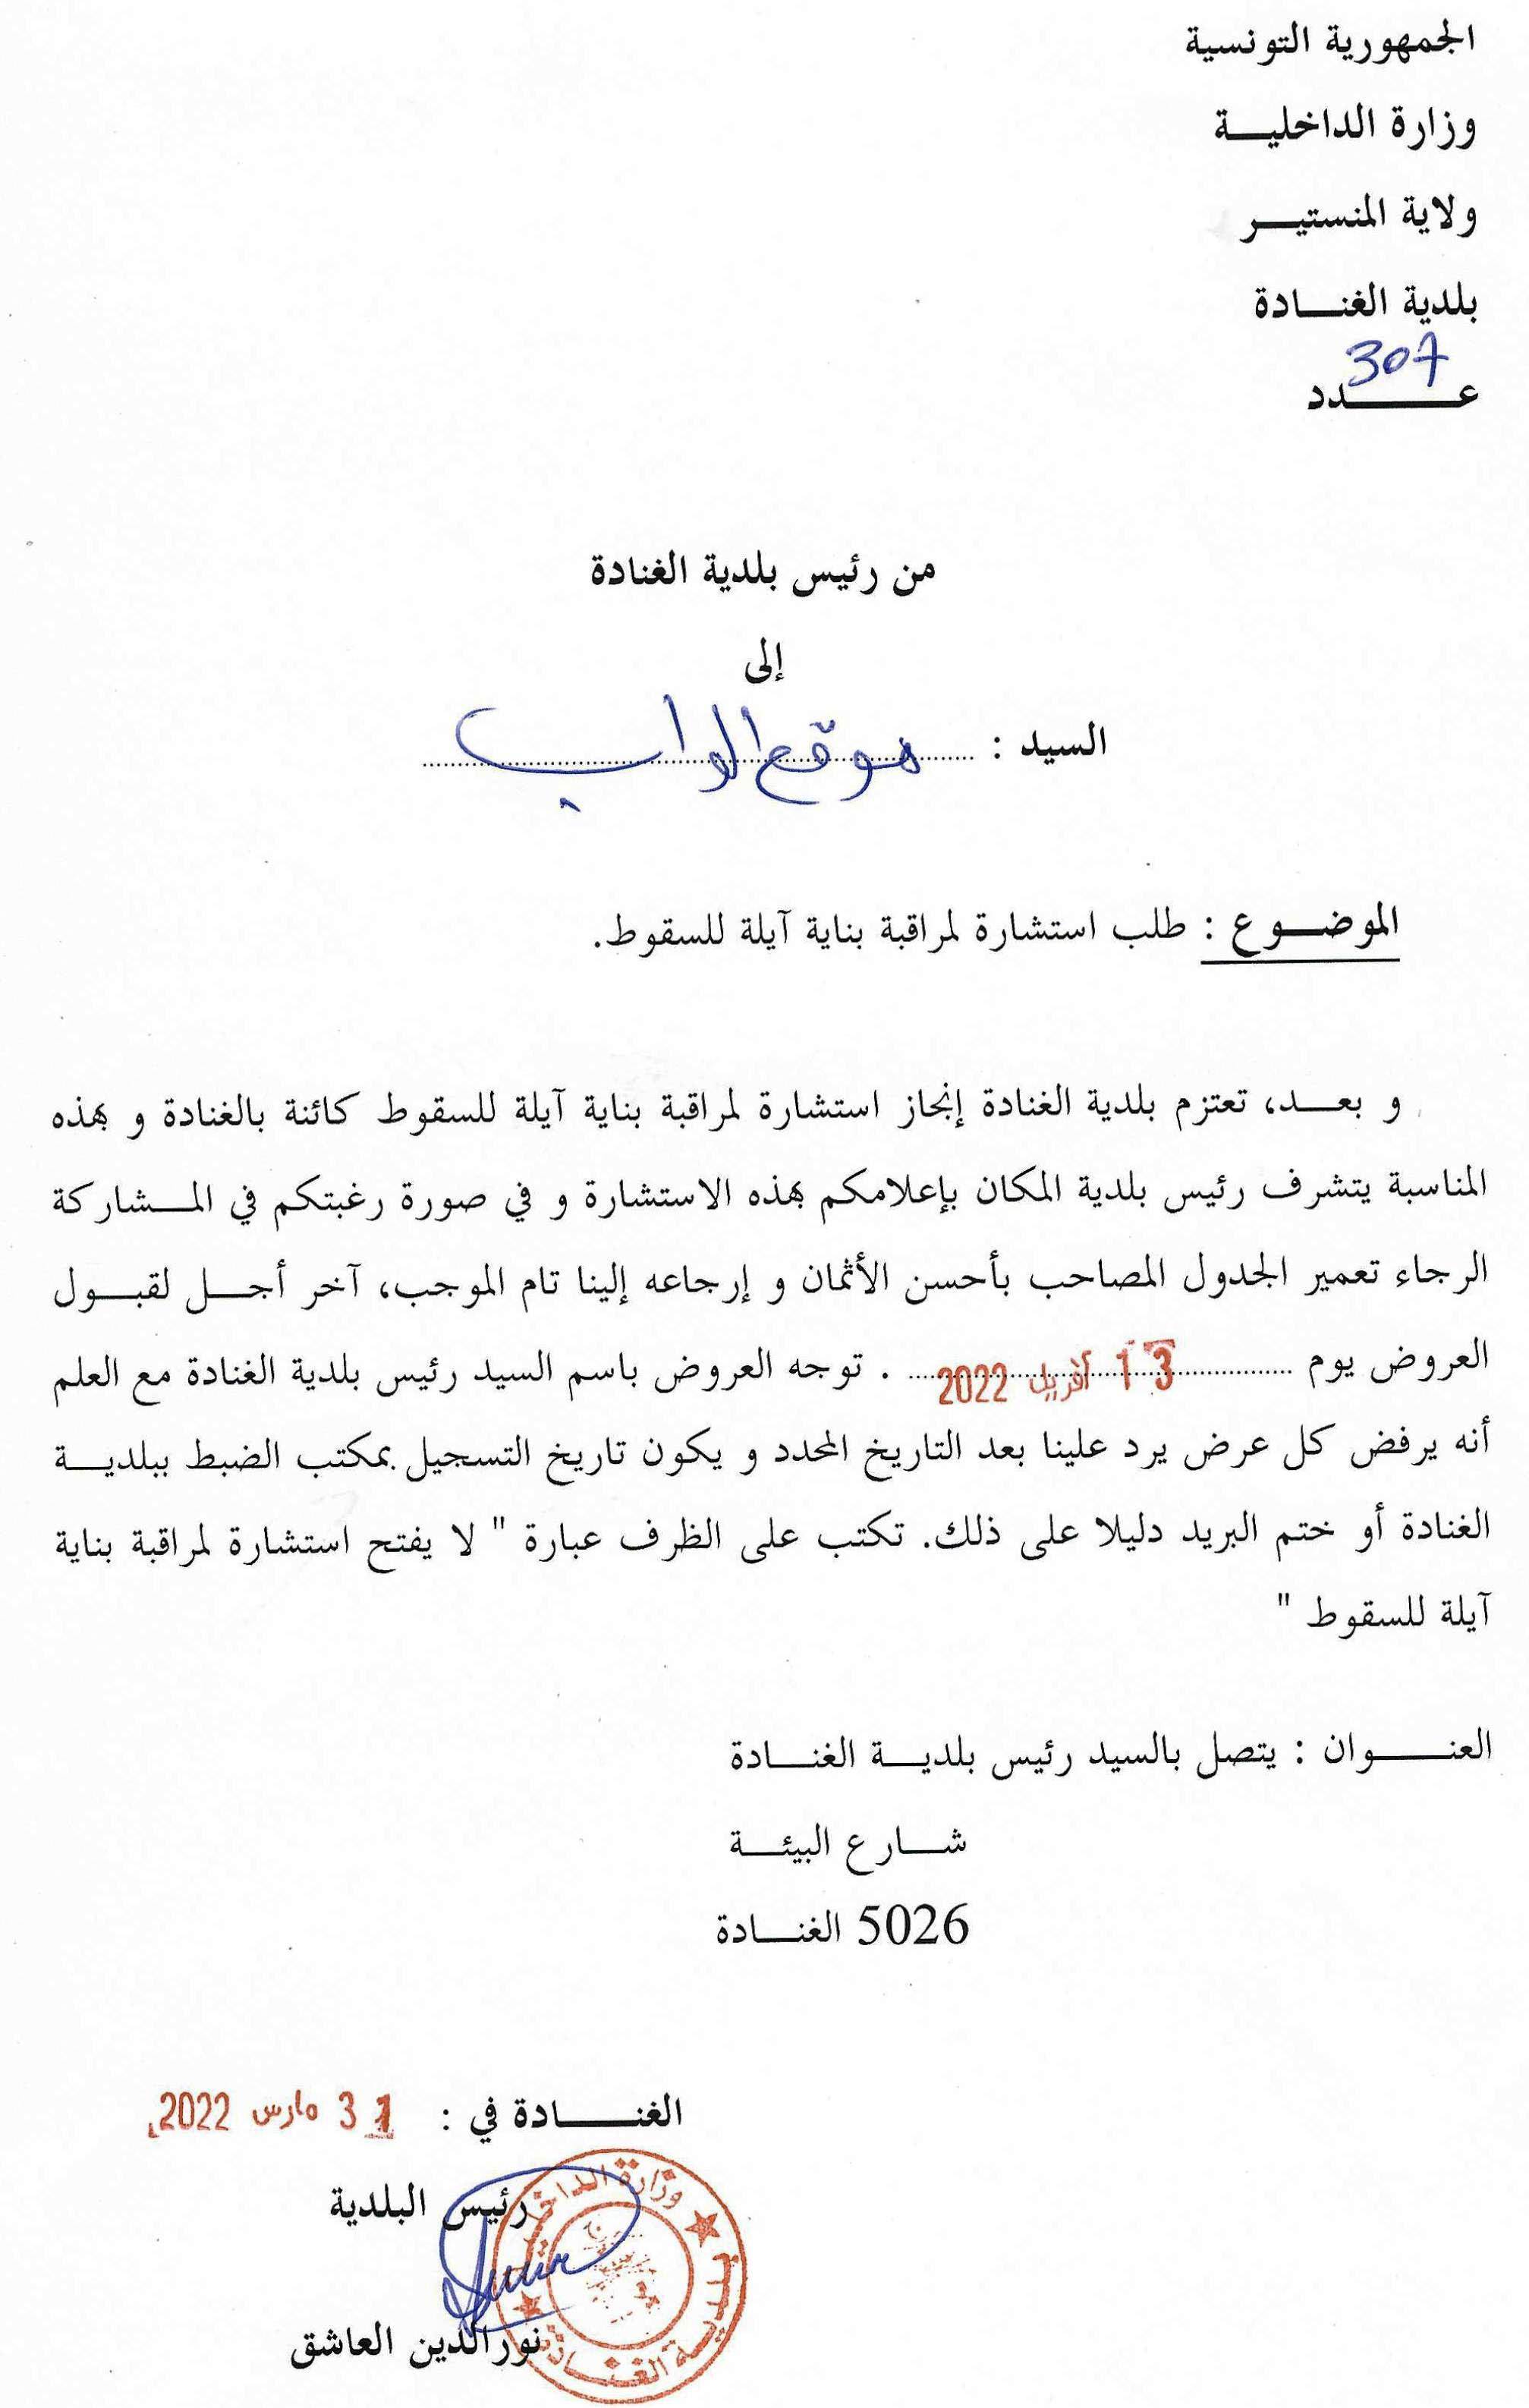 الجمهورية التونسية
وزارة الداخليـــة
ولاية المنستيـــر
بلدية الغنـــادة
307
عــــــدد
من رئيس بلدية الغنادة
إلى
السيد : موقع الواب
الموضـــوع : طلب استشارة لمراقبة بناية آيلة للسقوط.
و بعـــد، تعتزم بلدية الغنادة إنجاز استشارة لمراقبة بناية آيلة للسقوط كائنة بالغنادة و بهذه
المناسبة يتشرف رئيس بلدية المكان بإعلامكم بهذه الاستشارة و في صورة رغبتكم في المـــشاركة
الرجاء تعمير الجدول المصاحب بأحسن الأثمان و إرجاعه إلينا تام الموجب، آخر أجـــل لقبـــول
العروض يوم 13 أفريل 2022 . توجه العروض باسم السيد رئيس بلدية الغنادة مع العلم
أنه يرفض كل عرض يرد علينا بعد التاريخ المحدد و يكون تاريخ التسجيل بمكتب الضبط ببلديـــة
الغنادة أو ختم البريد دليلا على ذلك. تكتب على الظرف عبارة " لا يفتح استشارة لمراقبة بناية
آيلة للسقوط "
العنـــــوان : يتصل بالسيد رئيس بلديـــة الغنـــادة
شـــارع البيئـــة
5026 الغنـــادة
الغنـــــادة في : 31 مارس 2022
رئيس البلدية
نور الدين العاشق
وزارة الداخلية
بلدية الغنادة